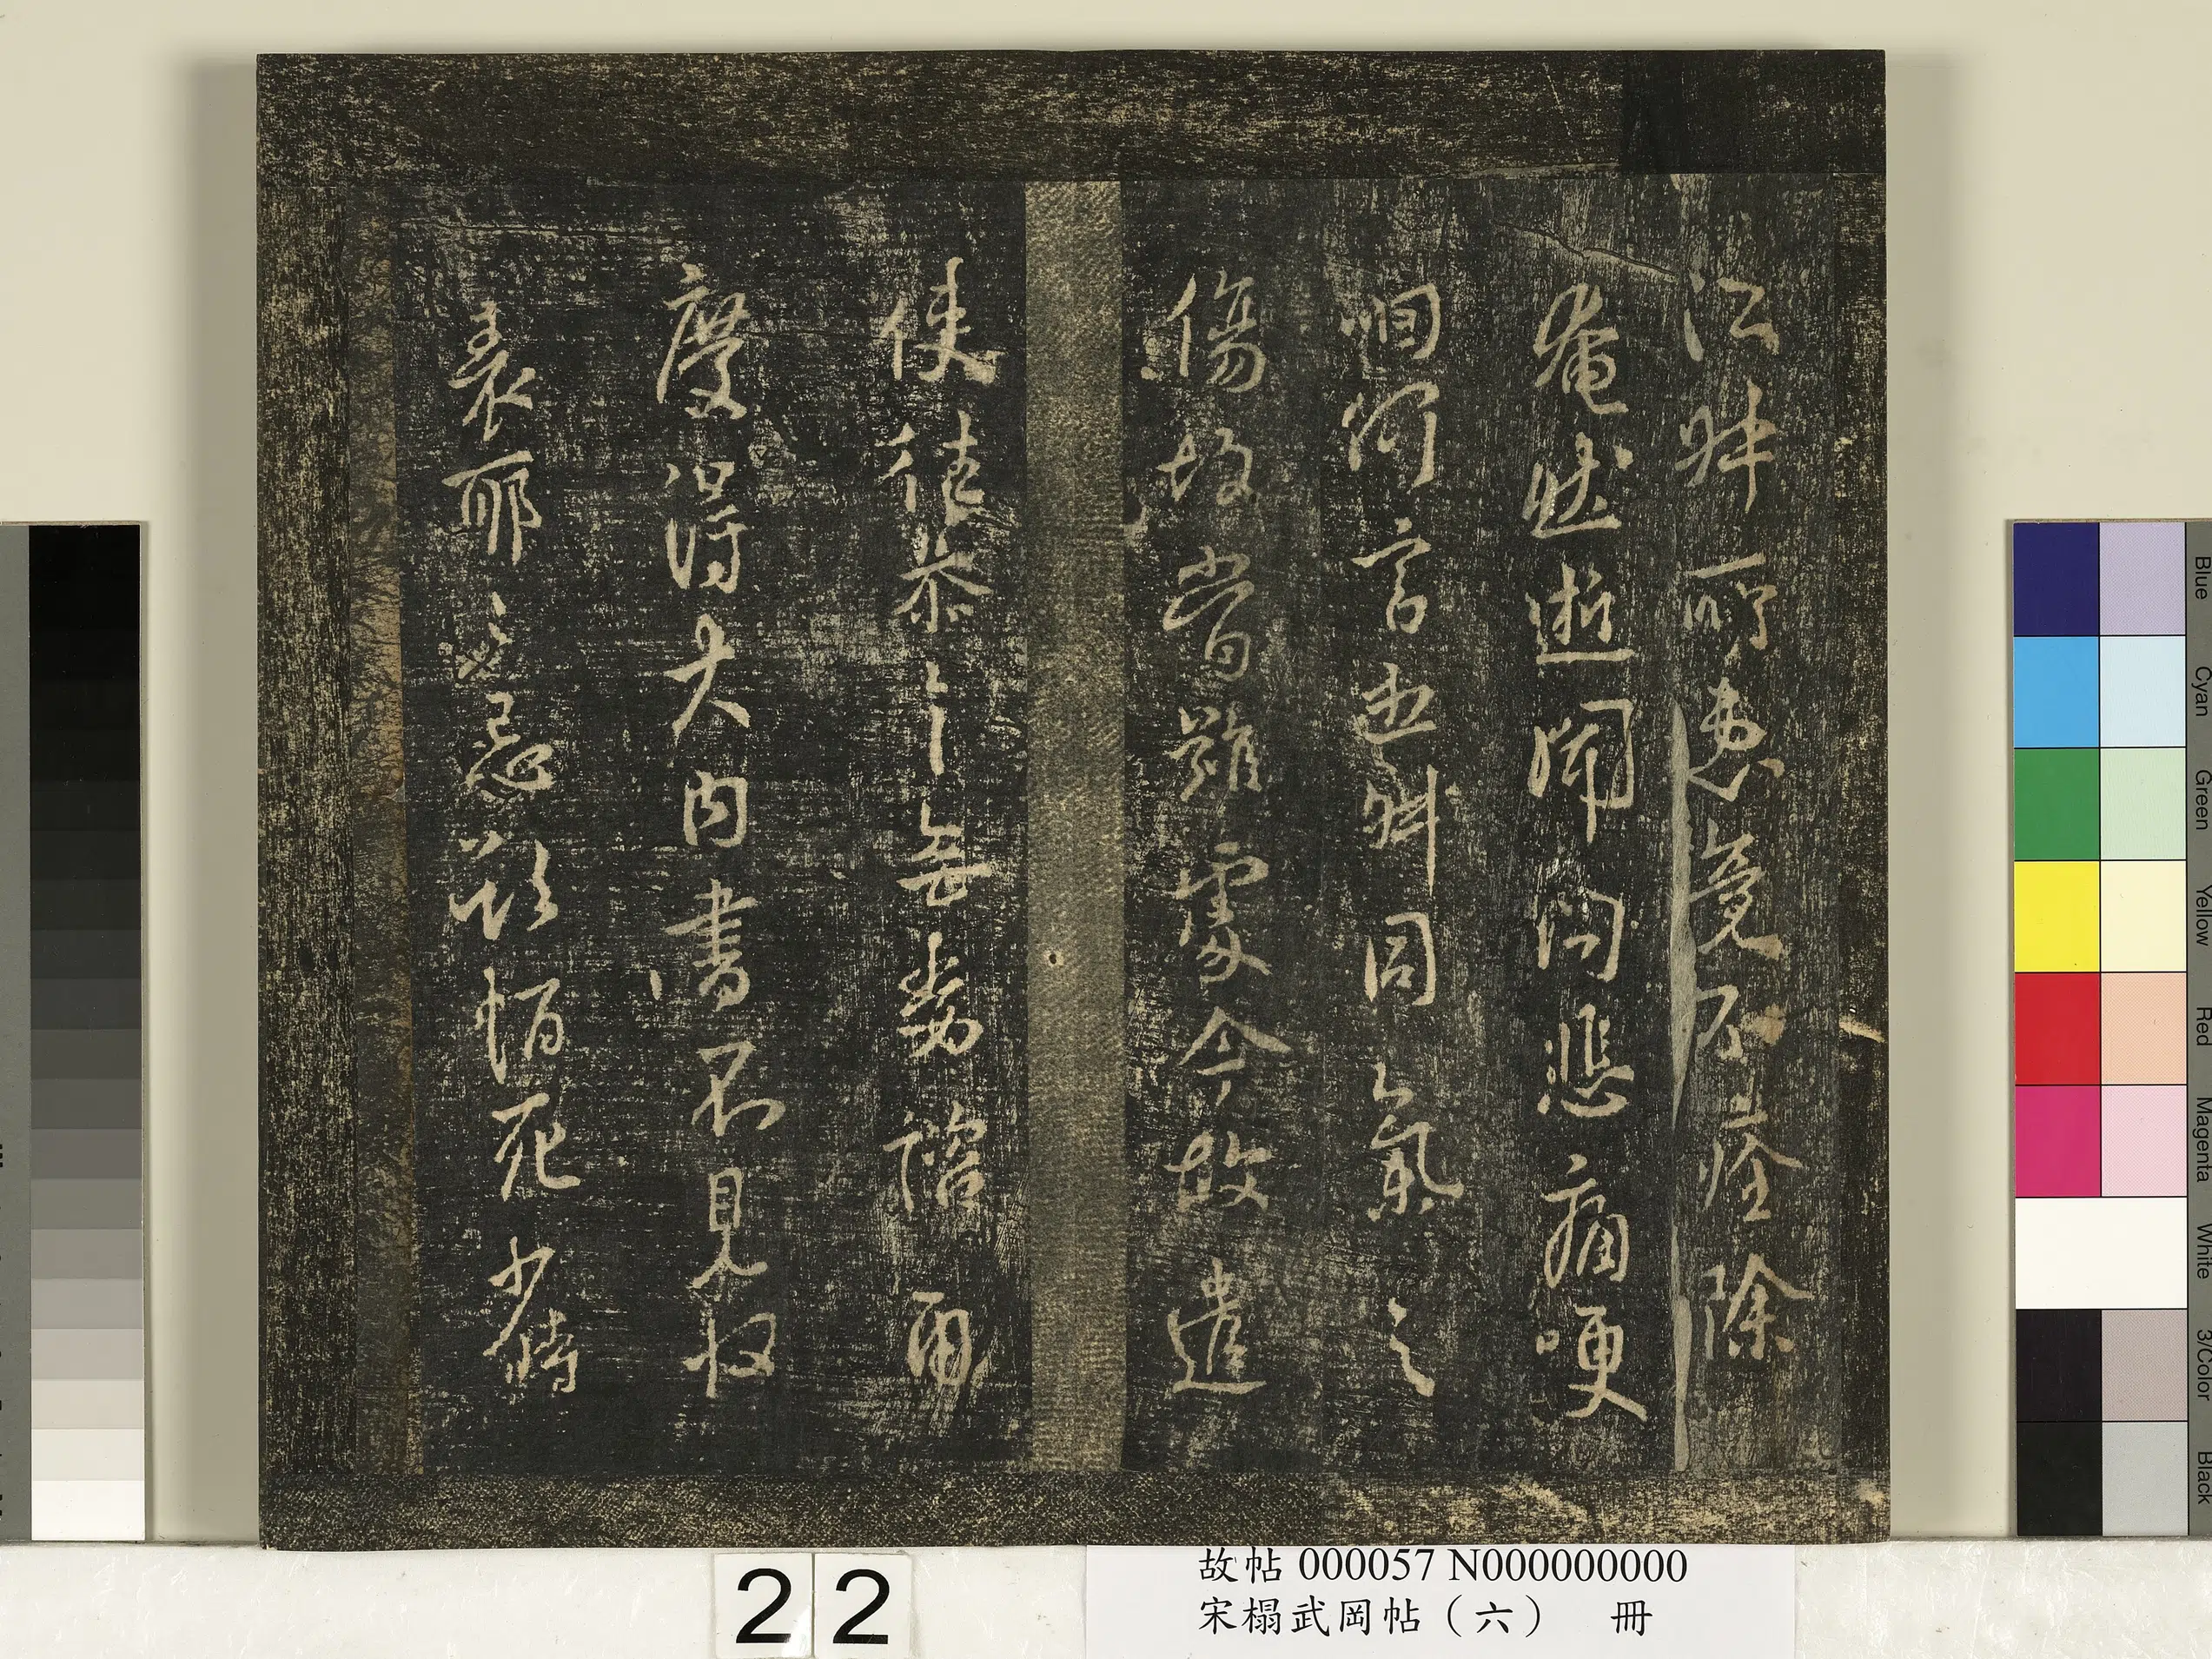 江姊所患竟不痊除
奄然逝聞問悲痛哽
咽何言也姊同氣之
傷故當難處今故遣
使徃恭之無勞諮
慶得大內書不見
表耶忌死少時
Blue
Cyan
Green
Yellow
Red
Magenta
White
3/Color
Black
22
故帖 000057 N000000000
宋榻武岡帖（六） 冊